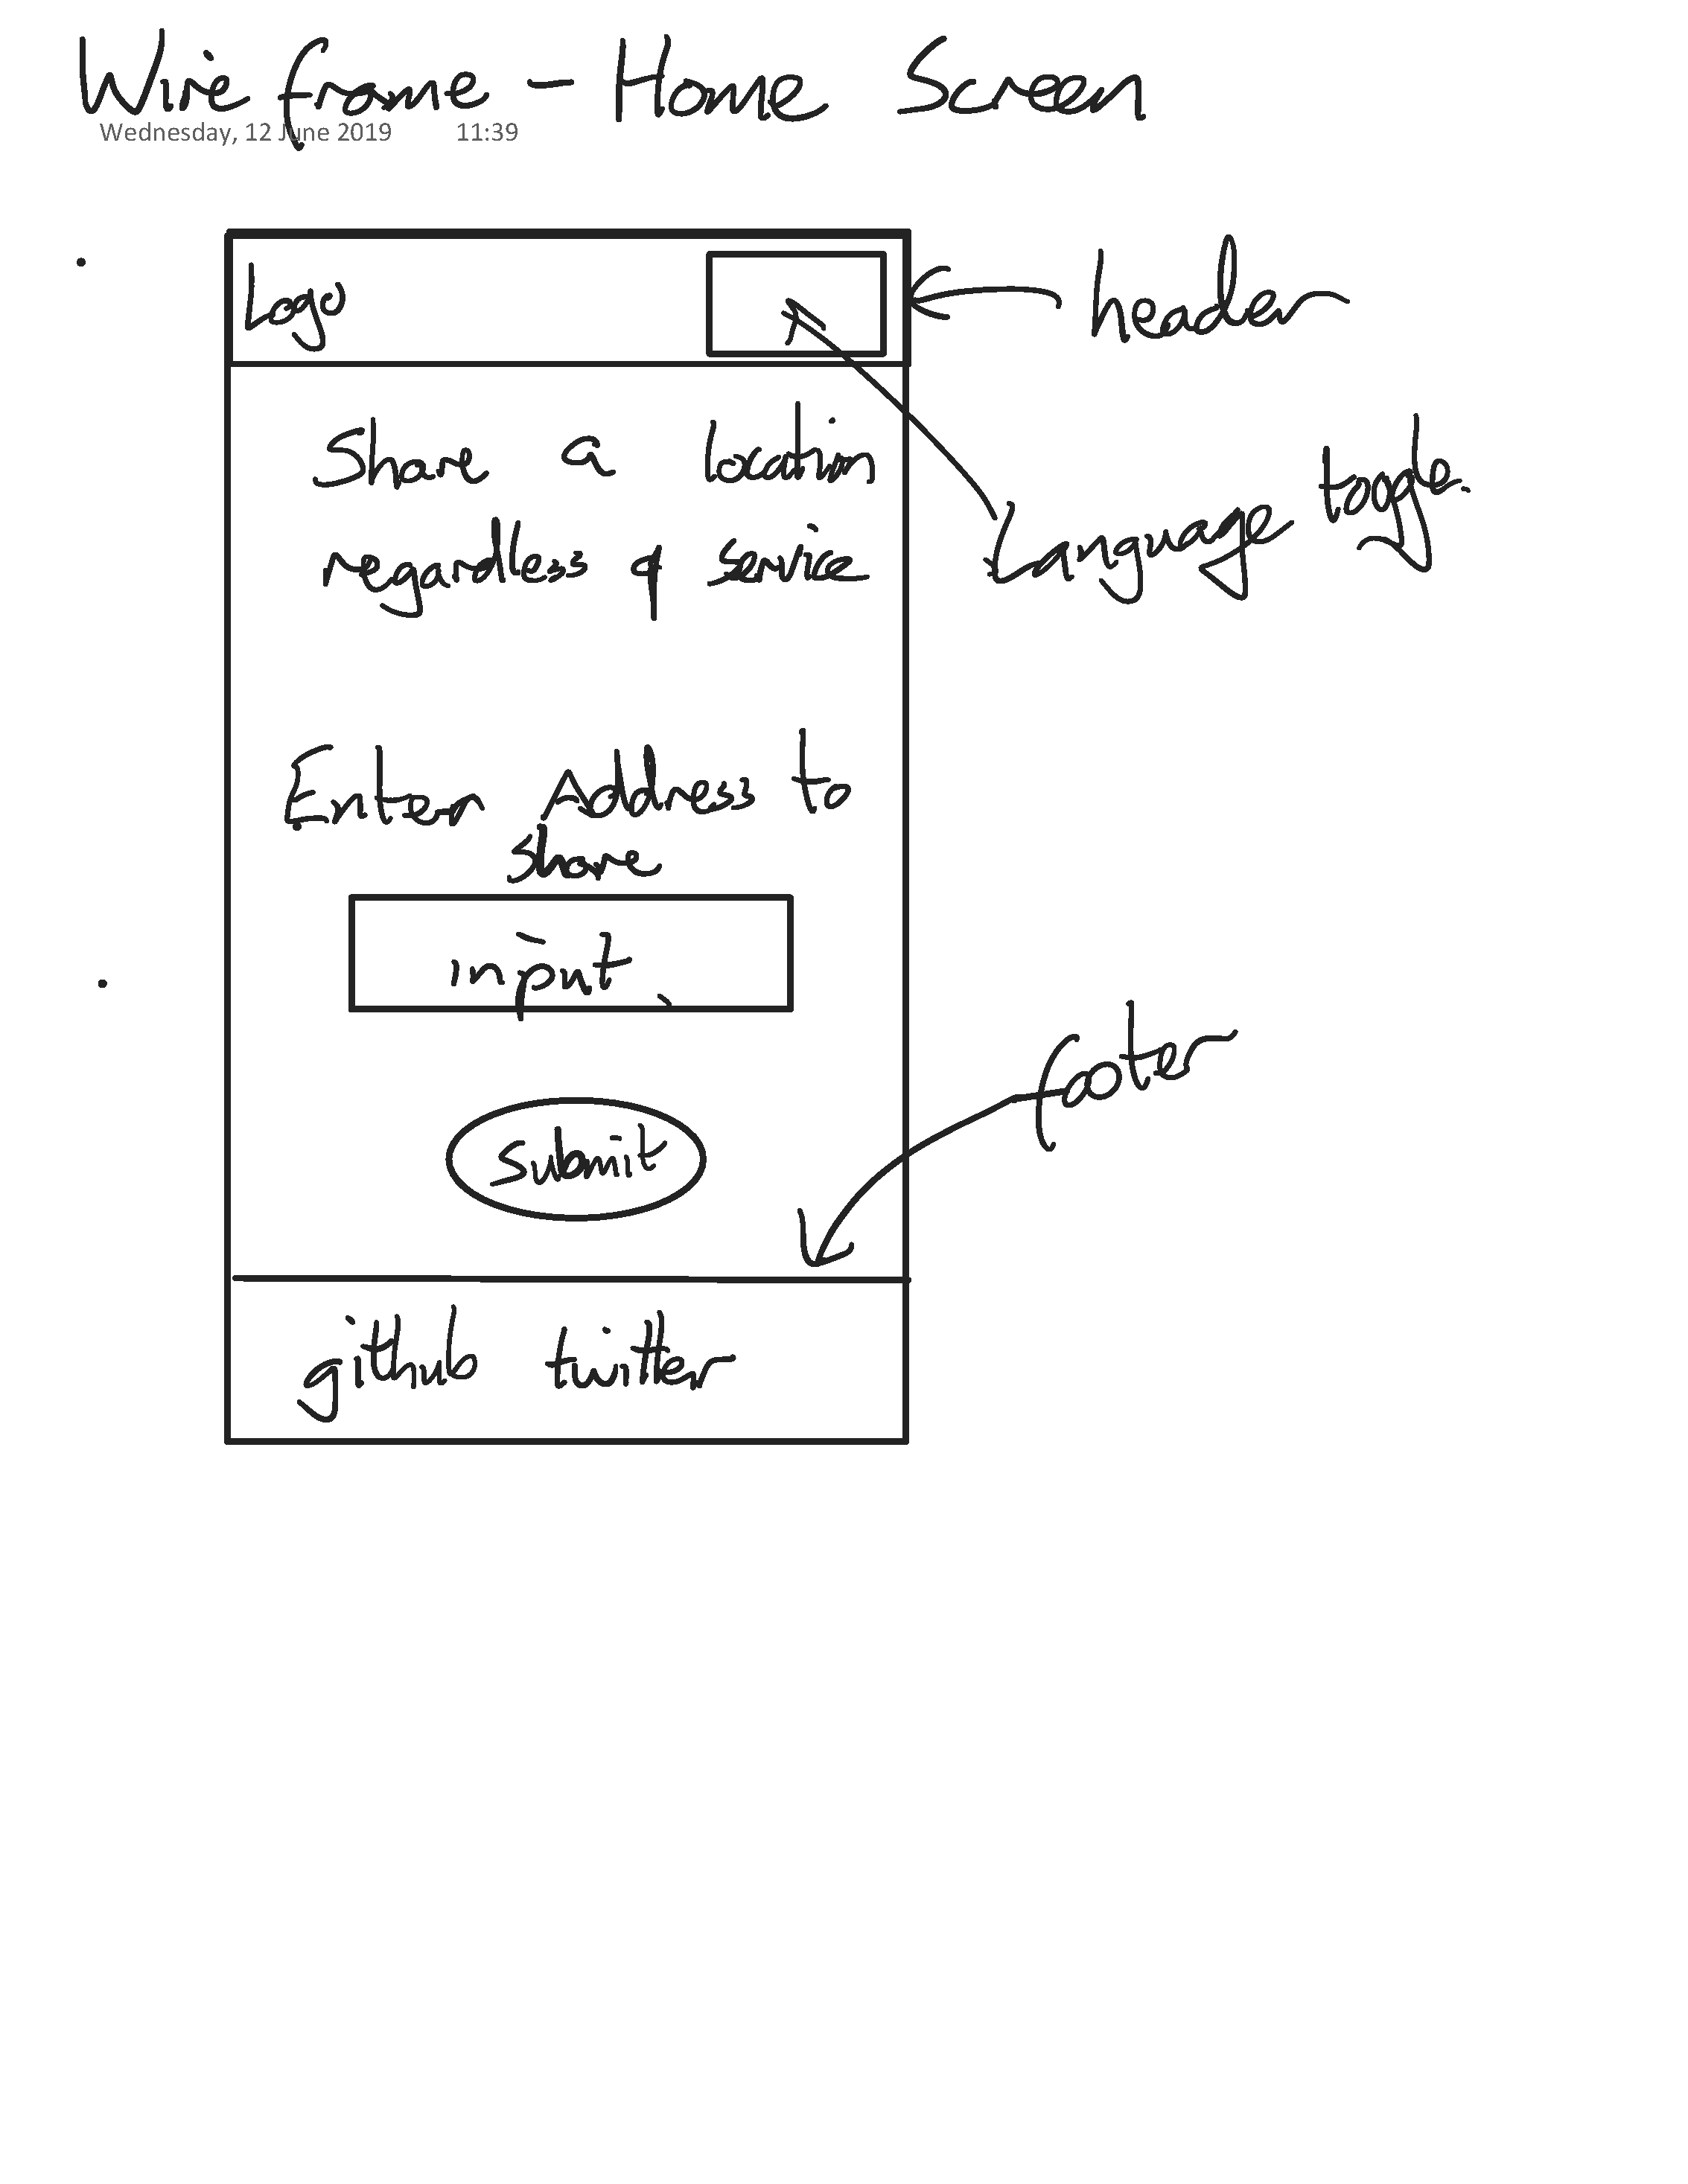 Wireframe - Home Screen
Wednesday, 12 June 2019 11:39
Logo
header
Share a location
regardless of service
Language toggle.
Enter Address to
share
input
footer
Submit
github twitter